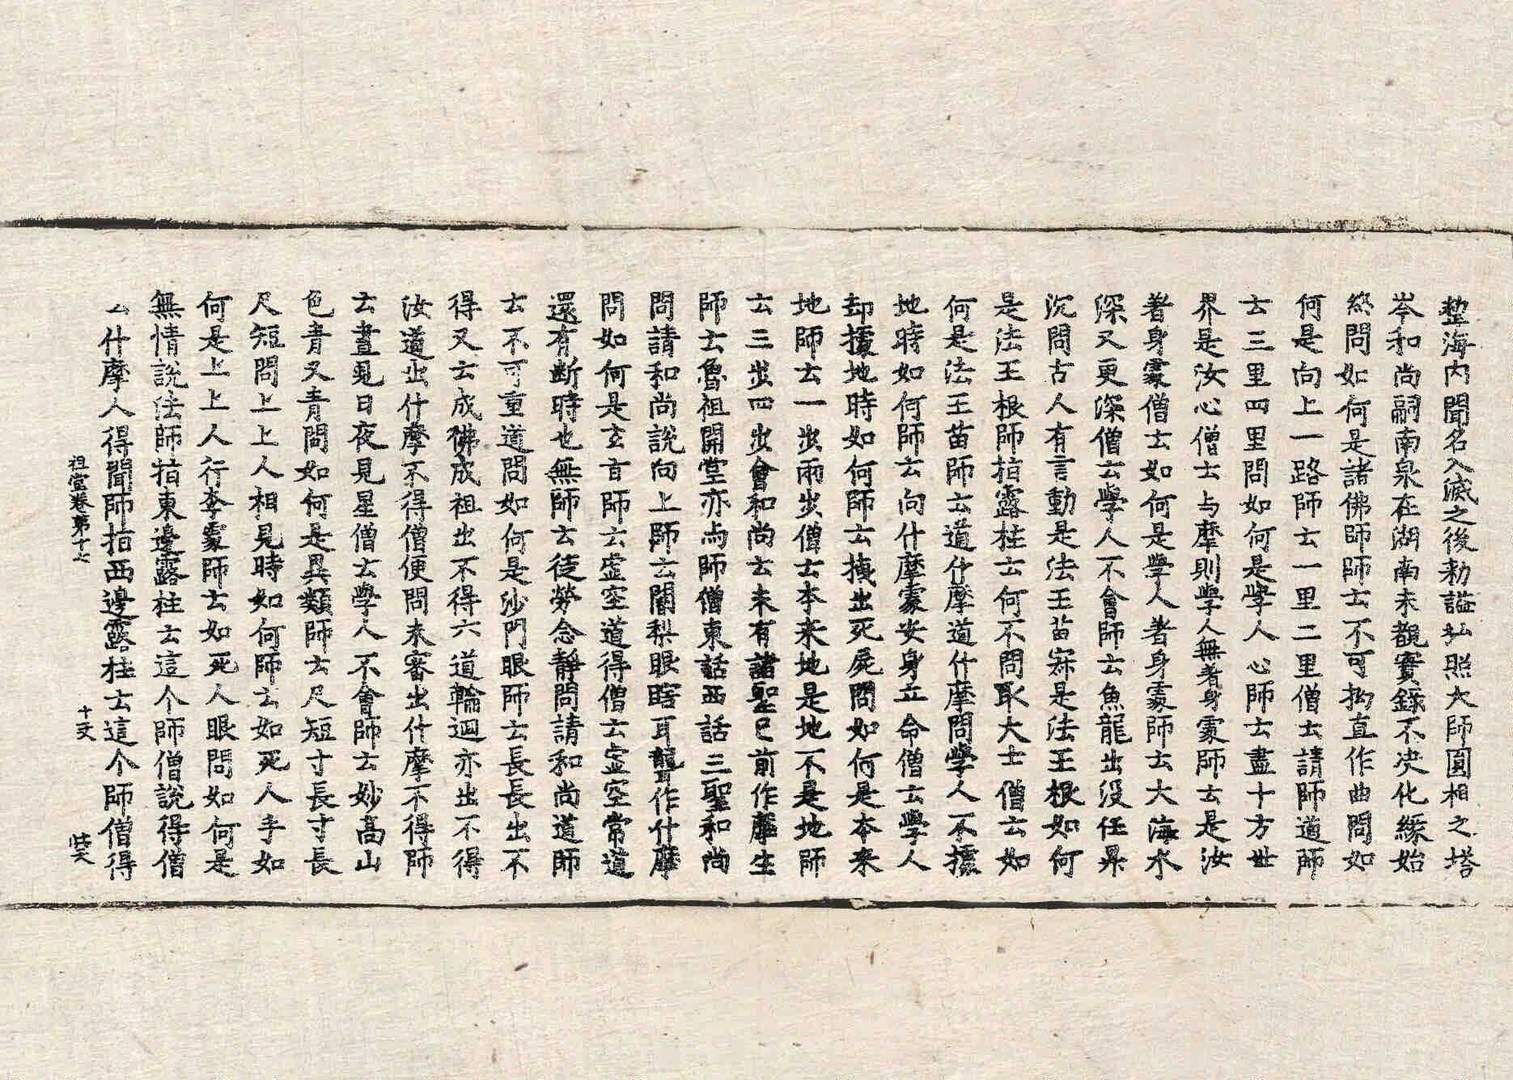 整海內聞名入滅之後勅謚弘照大師圓相之塔
岑和尚嗣南泉在湖南未覩實錄不決化緣始
終問如何是諸佛師師云不可拗直作曲問如
何是向上一路師云一里二里僧云請師道師
云三里四里問如何是學人心師云盡十方世
界是汝心僧云与摩則學人無著身處師云是汝
著身處僧云如何是學人著身處師云大海水
深又更深僧云學人不會師云魚龍出没任昇
沉問古人有言動是法王苗寂是法王根如何
是法王根師指露柱云何不問取大士僧云如
何是法王苗師云道什摩道什摩問學人不據
地時如何師云向什摩處安身立命僧云學人
却據地時如何師云拽出死屍問如何是本來
地師云一出兩出僧云本來地是地不是地師
云三出四出會和尚云未有諸聖已前作麽生
師云魯祖開堂亦与師僧東話西話三聖和尚
問請和尚說向上師云闍梨眼瞎耳聾作什摩
問如何是玄旨師云虛空道得僧云虛空常道
還有斷時也無師云徒勞念靜問請和尚道師
云不可重道問如何是沙門眼師云長長出不
得又云成佛成祖出不得六道輪迴亦出不得
汝道出什摩不得僧便問未審出什摩不得師
云晝見日夜見星僧云學人不會師云妙高山
色青又青問如何是異類師云尺短寸長寸長
尺短問上上人相見時如何師云如死人手如
何是上上人行李處師云如死人眼問如何是
無情說法師指東邊露柱云這个師僧說得僧
云什摩人得聞師指西邊露柱云這个師僧得
祖堂卷第十七 十丈